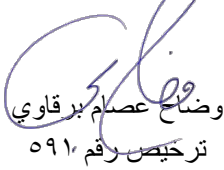 وضاح عصام برقاوي
ترخيص رقم ٥٩١